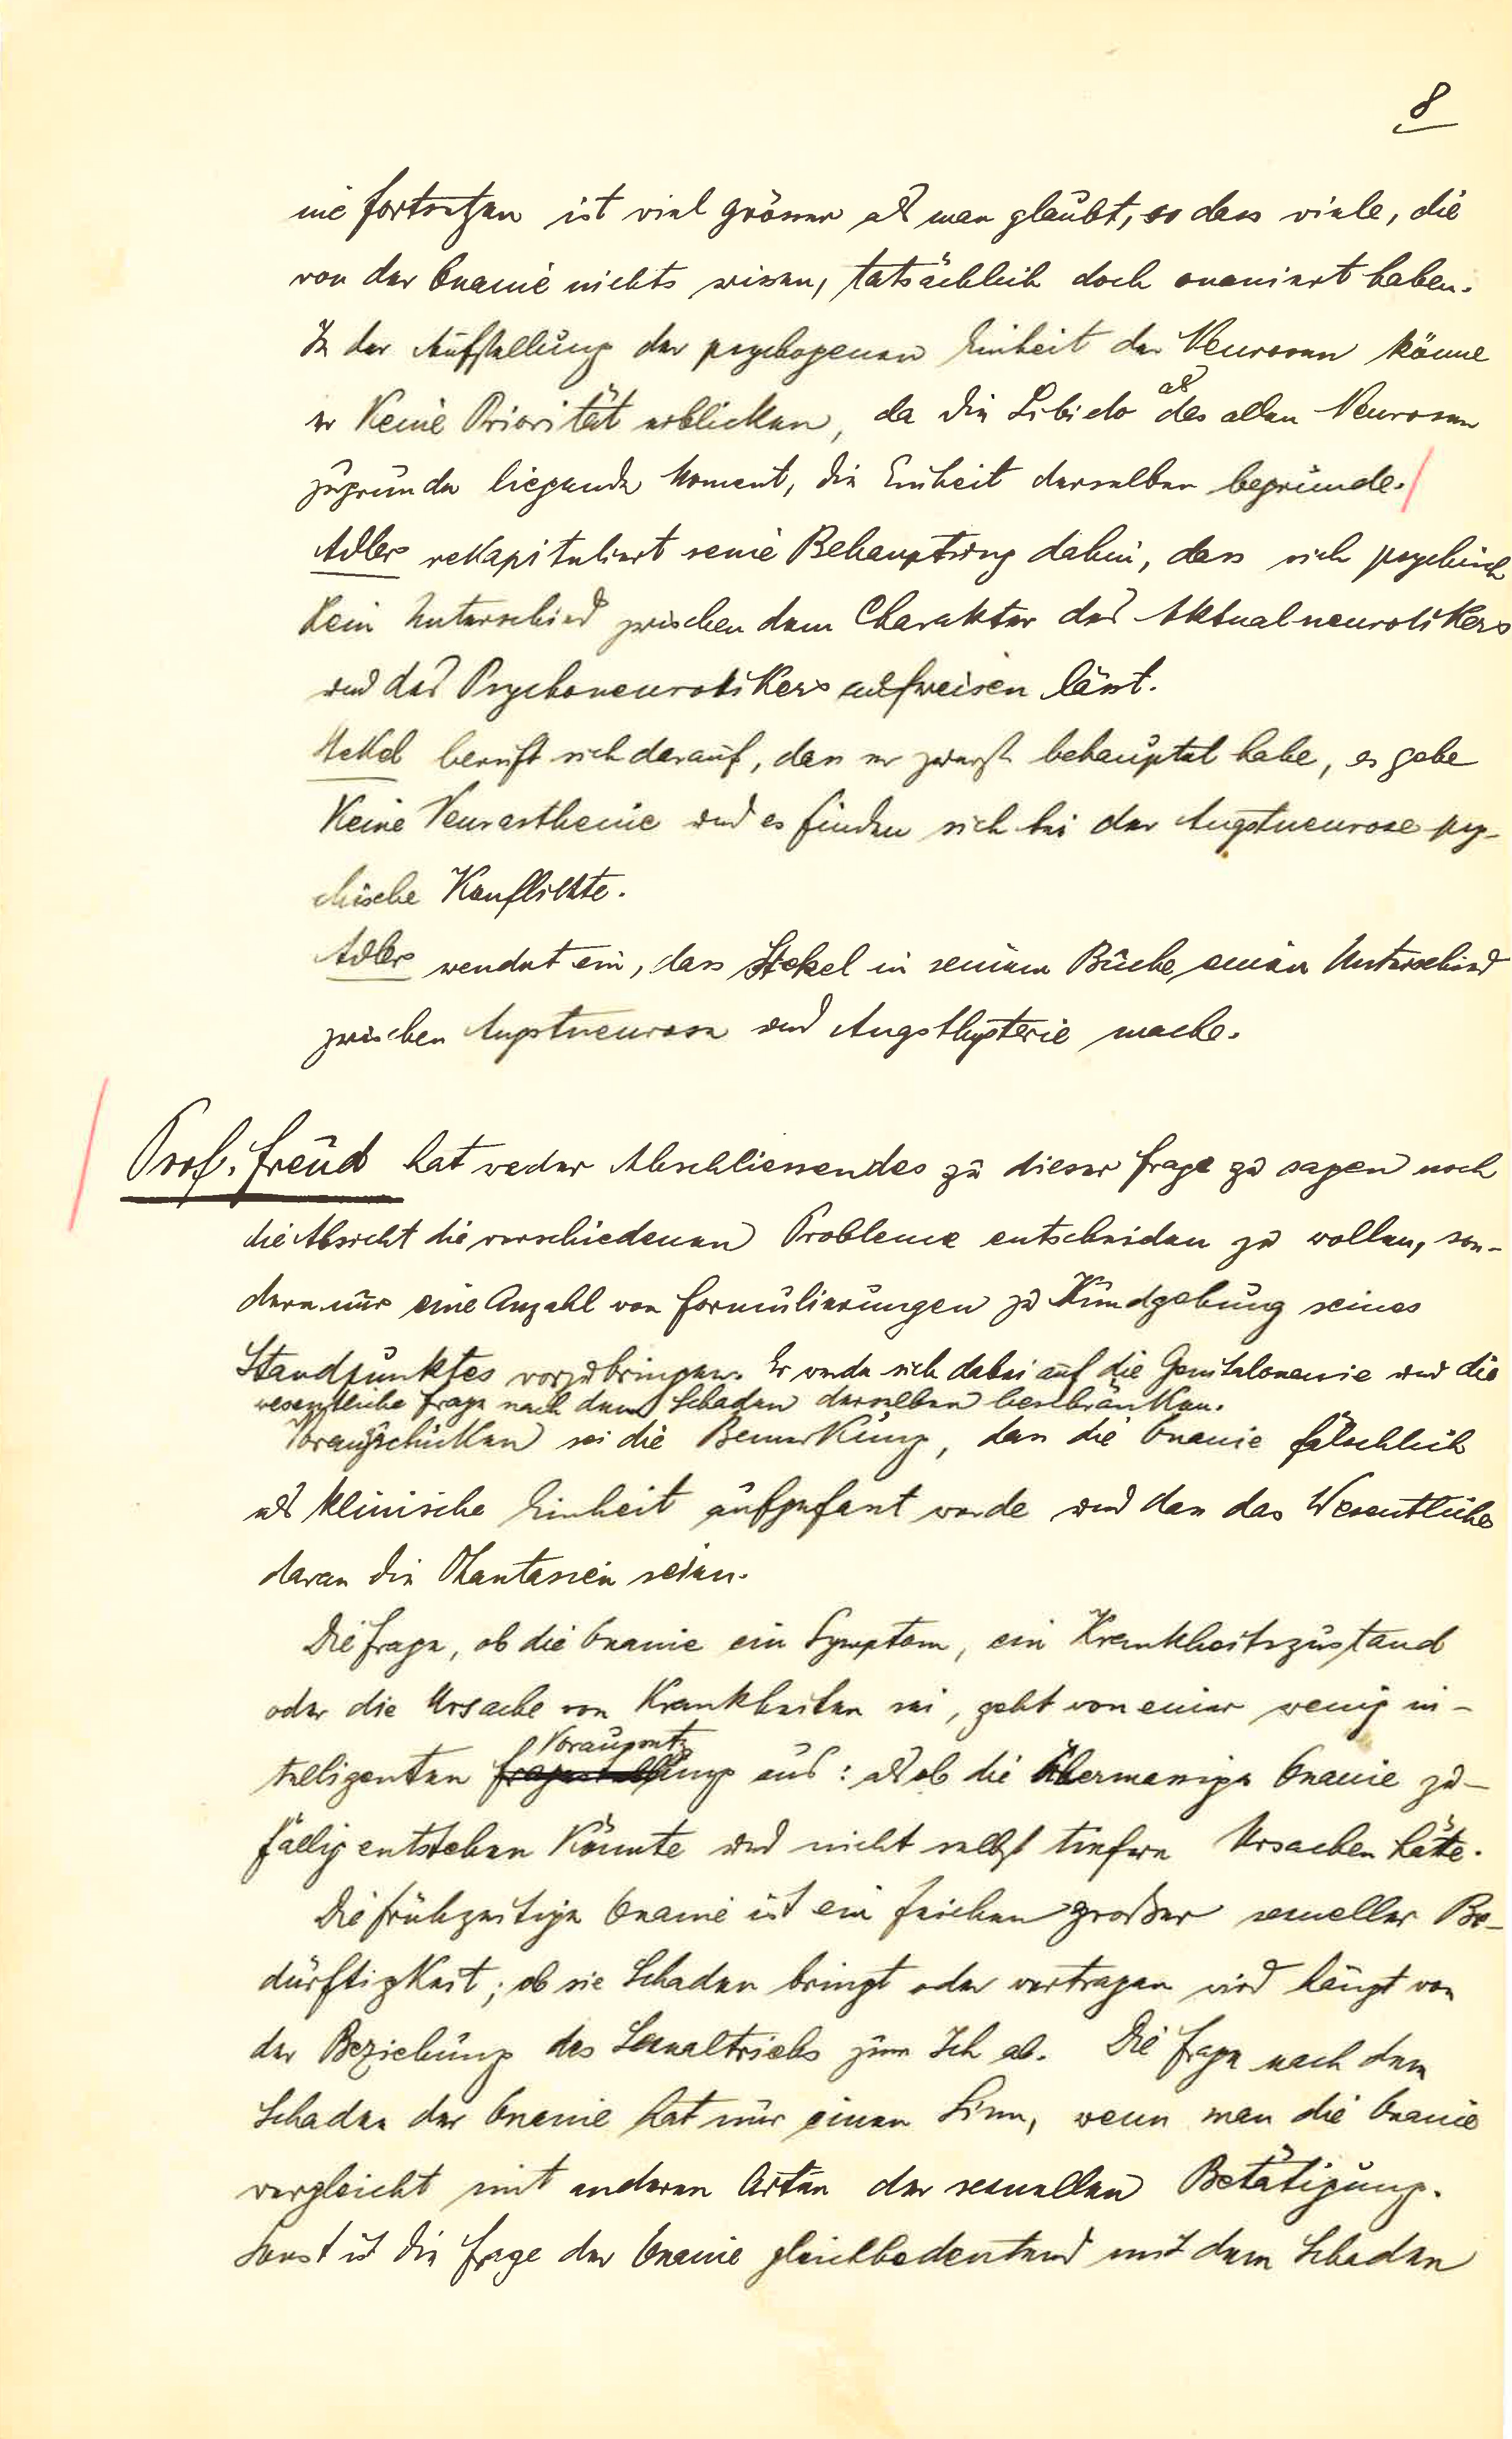 8
nie fortsetzen ist viel grösser als man glaubt, so dass viele, die
von der Onanie nichts wissen, tatsächlich doch onaniert haben.
In der Aufstellung der psychogenen Einheit der Neurosen könne
er keine Priorität erblicken, da die Libido als das allen Neurosen
zugrunde liegende Moment, die Einheit derselben begründe.
Adler rekapituliert seine Behauptung dahin, dass sich psychisch
kein Unterschied zwischen dem Charakter des Aktualneurotikers
und des Psychoneurotikers aufweisen lässt.
Stekel beruft sich darauf, dass er zuerst behauptet habe, es gebe
keine Neurasthenie und es finden sich bei der Angstneurose psy-
chische Konflikte.
Adler wendet ein, dass Stekel in seinem Buche einen Unterschied
zwischen Angstneurose und Angsthysterie mache.
Prof. Freud hat weder Abschliessendes zu dieser Frage zu sagen noch
die Absicht die verschiedenen Probleme entscheiden zu wollen, son-
dern nur eine Anzahl von Formulierungen zu Kundgebung seines
Standpunktes vorzubringen. Er werde sich dabei auf die Genitalonanie und die
wesentliche Frage nach dem Schaden derselben beschränken.
Vorauszuschicken sei die Bemerkung, dass die Onanie fälschlich
als klinische Einheit aufgefasst werde und dass das Wesentliche
daran die Phantasien seien.
Die Frage, ob die Onanie ein Symptom, ein Krankheitszustand
oder die Ursache von Krankheiten sei, geht von einer wenig in-
Voraussetz
telligenten Fragestellung aus: als ob die übermässige Onanie zu-
fällig entstehen könnte und nicht selbst tiefere Ursachen hätte.
Die frühzeitige Onanie ist ein Zeichen großer sexueller Be-
dürftigkeit; ob sie Schaden bringt oder vertragen wird hängt von
der Beziehung des Sexualtriebs zum Ich ab. Die Frage nach dem
Schaden der Onanie hat nur einen Sinn, wenn man die Onanie
vergleicht mit anderen Arten der sexuellen Betätigung.
Sonst ist die Frage der Onanie gleichbedeutend mit dem Schaden